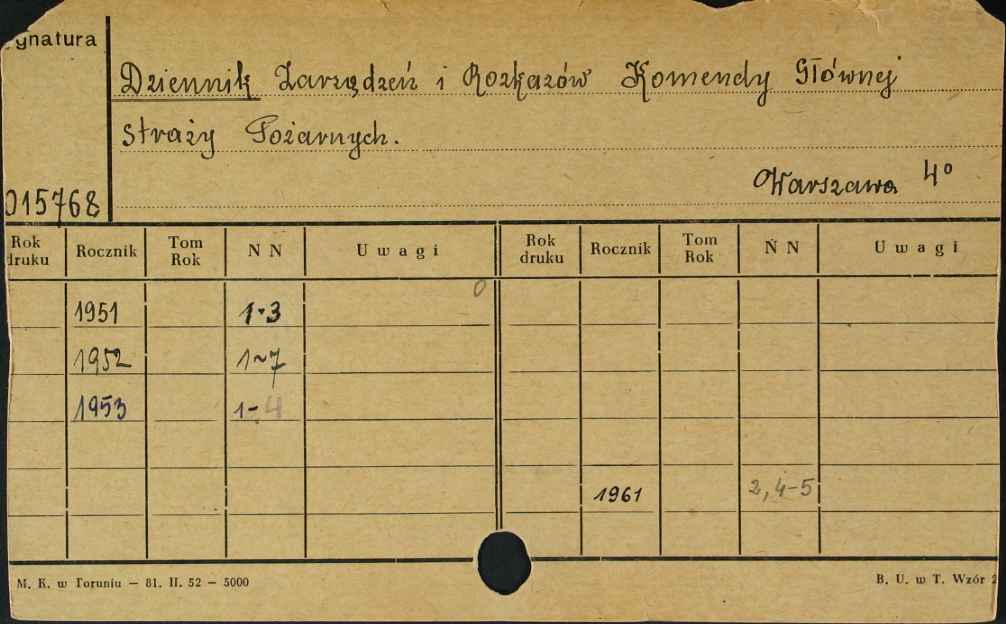 ygnatura
Dziennik Zarządzeń i Rozkazów Komendy Głównej
Straży Pożarnych.
Warszawa 4°
015768
Rok druku Rocznik Tom Rok N N Uwagi Rok druku Rocznik Tom Rok N N Uwagi
0
1951 1-3
1952 1-7
1953 1-4
1961 2, 4-5
M. K. w Toruniu — 81. II. 52 — 5000 B. U. w T. Wzór 2